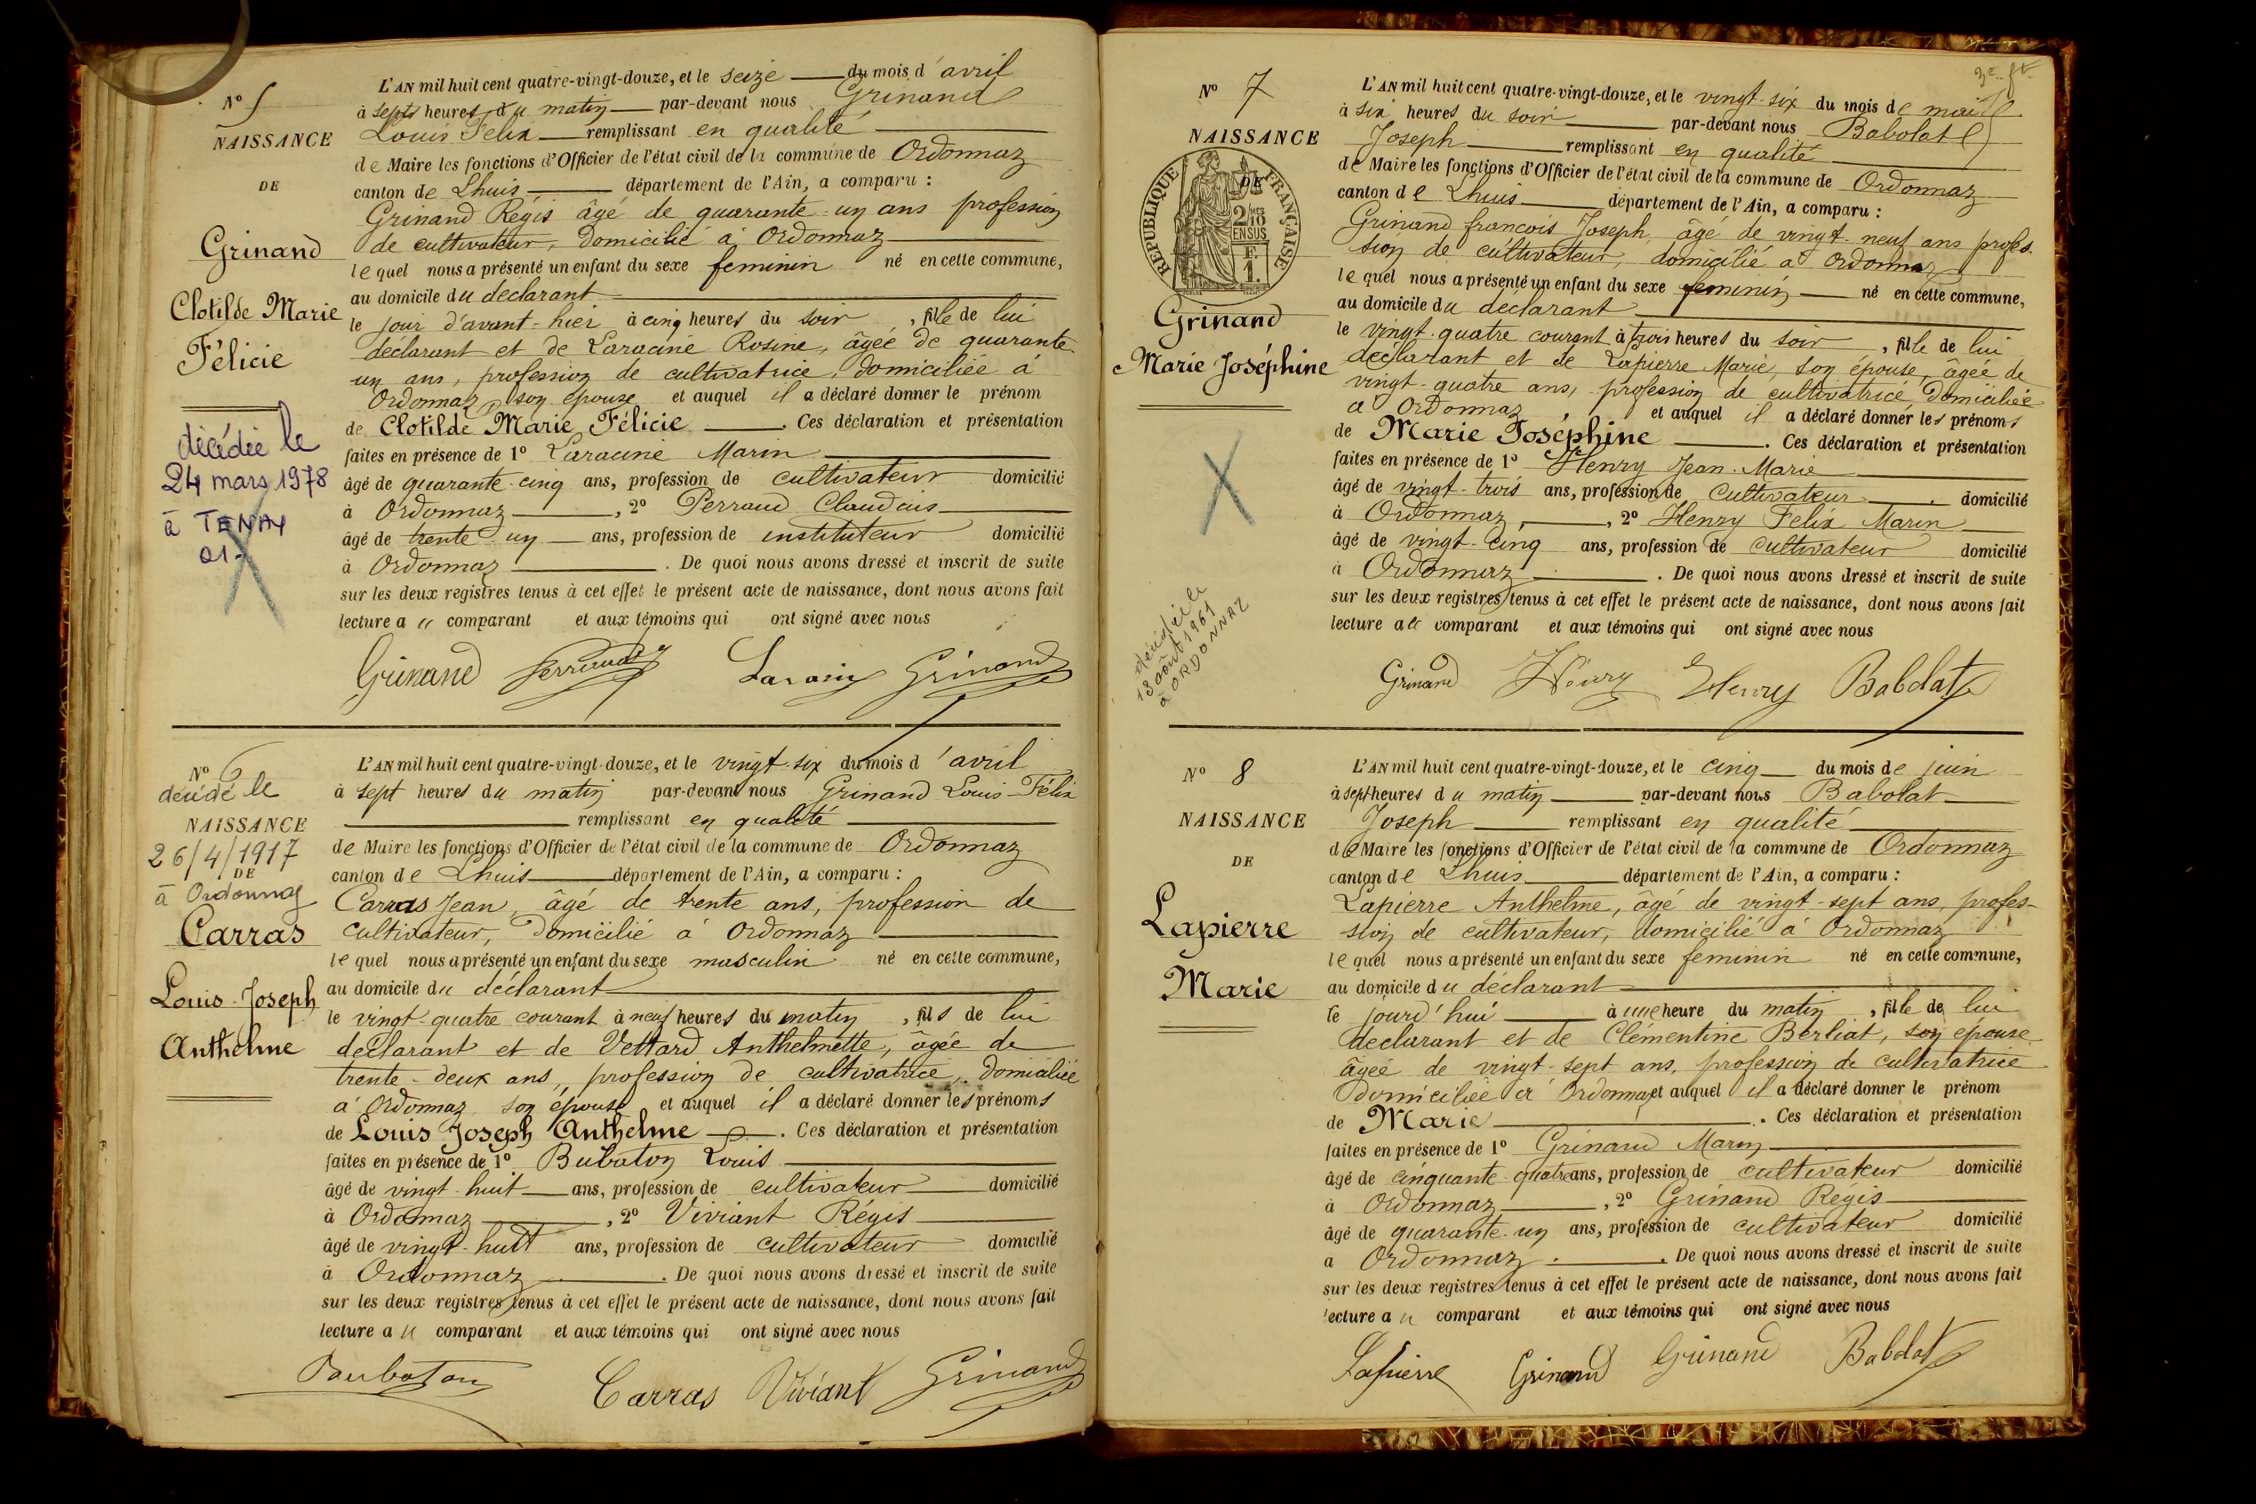 N° 5
NAISSANCE
DE
Grinand
Clotilde Marie
Félicie
décédée le
24 mars 1978
à TENAY
01-
L'AN mil huit cent quatre-vingt-douze, et le seize du mois d'avril
à sept heures du matin par-devant nous Grinand
Louis Félix remplissant en qualité
de Maire les fonctions d'Officier de l'état civil de la commune de Ordonnaz
canton de Lhuis département de l'Ain, a comparu :
Grinand Régis âgé de quarante-un ans profession
de cultivateur, domicilié à Ordonnaz
lequel nous a présenté un enfant du sexe feminin né en cette commune,
au domicile du déclarant
le jour d'avant-hier à cinq heures du soir, fille de lui
déclarant et de Laracine Rosine, âgée de quarante-
un ans, profession de cultivatrice, domiciliée à
Ordonnaz son épouse et auquel il a déclaré donner le prénom
de Clotilde Marie Félicie. Ces déclaration et présentation
faites en présence de 1° Laracine Marin
âgé de quarante-cinq ans, profession de cultivateur domicilié
à Ordonnaz, 2° Perraud Claudius
âgé de trente un ans, profession de instituteur domicilié
à Ordonnaz. De quoi nous avons dressé et inscrit de suite
sur les deux registres tenus à cet effet le présent acte de naissance, dont nous avons fait
lecture au comparant et aux témoins qui ont signé avec nous
Grinand Perraud Laracine Grinand
N° 6
décédé le
NAISSANCE
26/4/1917
DE
à Ordonnaz
Carras
Louis-Joseph
Anthelme
L'AN mil huit cent quatre-vingt-douze, et le vingt-six du mois d'avril
à sept heures du matin par-devant nous Grinand Louis-Félix
remplissant en qualité
de Maire les fonctions d'Officier de l'état civil de la commune de Ordonnaz
canton de Lhuis département de l'Ain, a comparu :
Carras Jean, âgé de trente ans, profession de
cultivateur, domicilié à Ordonnaz
lequel nous a présenté un enfant du sexe masculin né en cette commune,
au domicile du déclarant
le vingt-quatre courant à neuf heures du matin, fils de lui
déclarant et de Vettard Anthelmette, âgée de
trente-deux ans, profession de cultivatrice, domiciliée
à Ordonnaz son épouse et auquel il a déclaré donner les prénoms
de Louis Joseph Anthelme. Ces déclaration et présentation
faites en présence de 1° Bubaton Louis
âgé de vingt-huit ans, profession de cultivateur domicilié
à Ordonnaz, 2° Viviant Régis
âgé de vingt-huit ans, profession de cultivateur domicilié
à Ordonnaz. De quoi nous avons dressé et inscrit de suite
sur les deux registres tenus à cet effet le présent acte de naissance, dont nous avons fait
lecture au comparant et aux témoins qui ont signé avec nous
Carras Viviant Grinand
N° 7
NAISSANCE
DE
RÉPUBLIQUE FRANÇAISE
2/10 EN SUS
F. 1.
Grinand
Marie Joséphine
décédée le
13 août 1961
à ORDONNAZ
L'AN mil huit cent quatre-vingt-douze, et le vingt-six du mois de mai
à six heures du soir par-devant nous Babolat
Joseph remplissant en qualité
de Maire les fonctions d'Officier de l'état civil de la commune de Ordonnaz
canton de Lhuis département de l'Ain, a comparu :
Grinand francois Joseph, âgé de vingt-neuf ans profes-
sion de cultivateur, domicilié à Ordonnaz
lequel nous a présenté un enfant du sexe feminin né en cette commune,
au domicile du déclarant
le vingt-quatre courant à trois heures du soir, fille de lui
déclarant et de Lapierre Marie, son épouse, âgée de
vingt-quatre ans, profession de cultivatrice, domiciliée
à Ordonnaz et auquel il a déclaré donner les prénoms
de Marie Joséphine. Ces déclaration et présentation
faites en présence de 1° Henry Jean-Marie
âgé de vingt-trois ans, profession de cultivateur domicilié
à Ordonnaz, 2° Henry Félix Marin
âgé de vingt-cinq ans, profession de cultivateur domicilié
à Ordonnaz. De quoi nous avons dressé et inscrit de suite
sur les deux registres tenus à cet effet le présent acte de naissance, dont nous avons fait
lecture au comparant et aux témoins qui ont signé avec nous
Grinand Henry Henry Babolat
N° 8
NAISSANCE
DE
Lapierre
Marie
L'AN mil huit cent quatre-vingt-douze, et le cinq du mois de juin
à sept heures du matin par-devant nous Babolat
Joseph remplissant en qualité
de Maire les fonctions d'Officier de l'état civil de la commune de Ordonnaz
canton de Lhuis département de l'Ain, a comparu :
Lapierre Anthelme, âgé de vingt-sept ans, profes-
sion de cultivateur, domicilié à Ordonnaz
lequel nous a présenté un enfant du sexe feminin né en cette commune,
au domicile du déclarant
le jourd'hui à une heure du matin, fille de lui
déclarant et de Clémentine Berliat, son épouse
âgée de vingt-sept ans, profession de cultivatrice
domiciliée à Ordonnaz et auquel il a déclaré donner le prénom
de Marie. Ces déclaration et présentation
faites en présence de 1° Grinand Marin
âgé de cinquante-quatre ans, profession de cultivateur domicilié
à Ordonnaz, 2° Grinand Régis
âgé de quarante-un ans, profession de cultivateur domicilié
à Ordonnaz. De quoi nous avons dressé et inscrit de suite
sur les deux registres tenus à cet effet le présent acte de naissance, dont nous avons fait
lecture au comparant et aux témoins qui ont signé avec nous
Lapierre Grinand Grinand Babolat